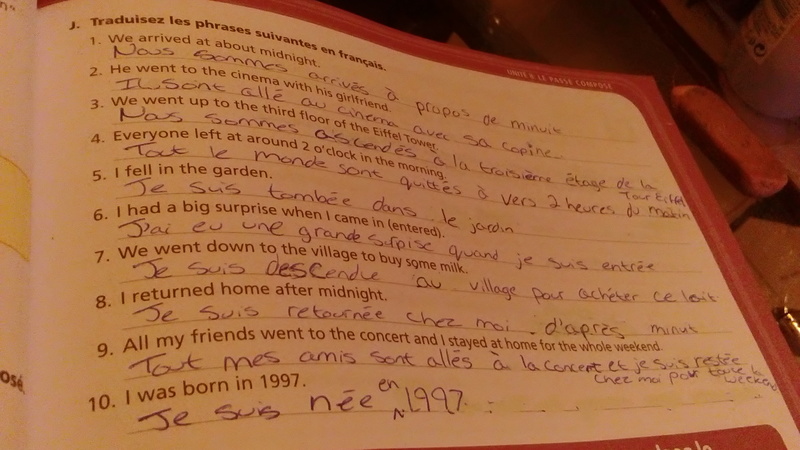 J. Traduisez les phrases suivantes en français.
UNITÉ 8 LE PASSÉ COMPOSÉ
1. We arrived at about midnight.
Nous sommes arrivés à propos de minuit
2. He went to the cinema with his girlfriend.
Il sont allé au cinema avec sa copine.
3. We went up to the third floor of the Eiffel Tower.
Nous sommes ascendés à la troisième étage de la
Tour Eiffel
4. Everyone left at around 2 o'clock in the morning.
Tout le monde sont quittés à vers 2 heures du matin
5. I fell in the garden.
Je suis tombée dans le jardin
6. I had a big surprise when I came in (entered).
J'ai eu une grande surpise quand je suis entrée
7. We went down to the village to buy some milk.
Je suis descendue au village pour achéter ce lait
8. I returned home after midnight.
Je suis retournée chez moi d'après minuit
9. All my friends went to the concert and I stayed at home for the whole weekend.
Tout mes amis sont allés à la concert et je suis restée
chez moi pour toute la
weekend
10. I was born in 1997.
Je suis née en 1997.